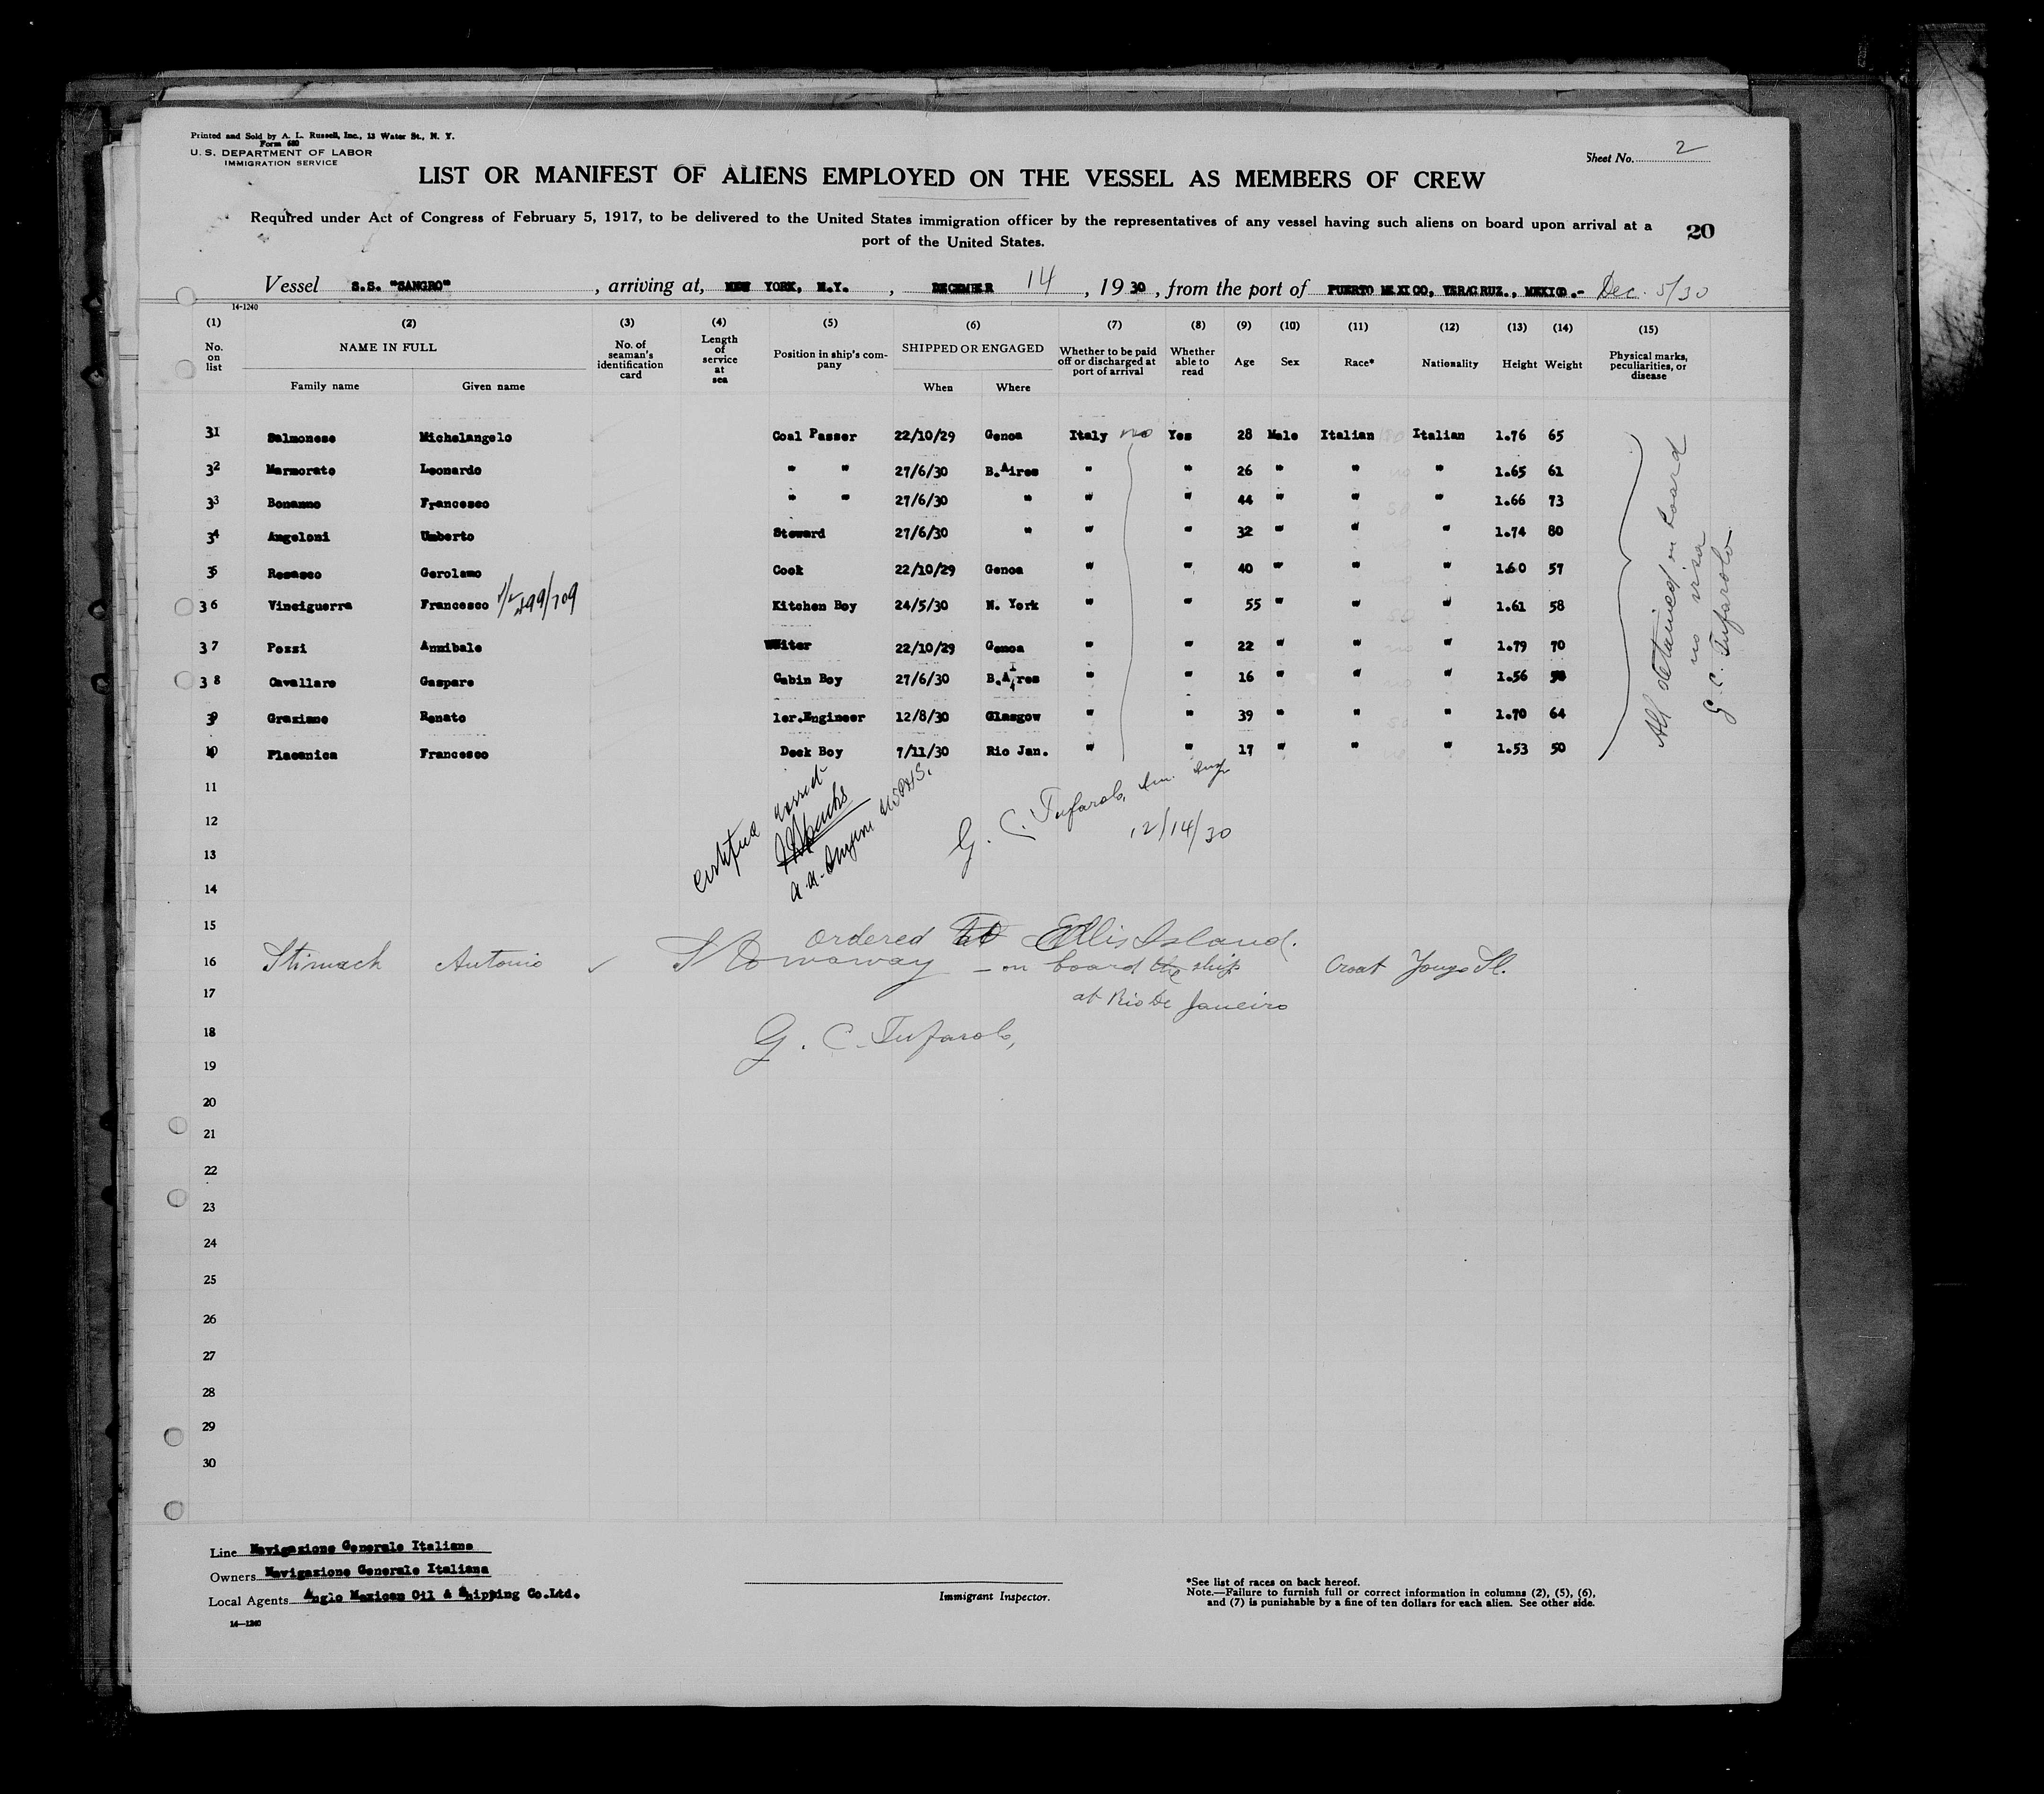 Printed and Sold by A. L. Russell, Inc., 13 Water St., N. Y.
Form 680
U. S. DEPARTMENT OF LABOR
IMMIGRATION SERVICE
Sheet No. 2
LIST OR MANIFEST OF ALIENS EMPLOYED ON THE VESSEL AS MEMBERS OF CREW
Required under Act of Congress of February 5, 1917, to be delivered to the United States immigration officer by the representatives of any vessel having such aliens on board upon arrival at a
port of the United States.
20
Vessel S.S. "SANGRO", arriving at, NEW YORK, N.Y., DECEMBER 14, 1930, from the port of PUERTO MEXICO, VERACRUZ., MEXICO.- Dec. 5/30
14-1240
(1) (2) (3) (4) (5) (6) (7) (8) (9) (10) (11) (12) (13) (14) (15)
No. on list NAME IN FULL No. of seaman's identification card Length of service at sea Position in ship's company SHIPPED OR ENGAGED Whether to be paid off or discharged at port of arrival Whether able to read Age Sex Race* Nationality Height Weight Physical marks, peculiarities, or disease
Family name Given name When Where
31 Salmonese Michelangelo Coal Passer 22/10/29 Genoa Italy no Yes 28 Male Italian Italian 1.76 65
32 Marmorato Leonardo " " 27/6/30 B.Aires " " 26 " " " 1.65 61
33 Bonanno Francesco " " 27/6/30 " " " 44 " " " 1.66 73
34 Angeloni Umberto Steward 27/6/30 " " " 32 " " " 1.74 80
35 Resasco Gerolamo Cook 22/10/29 Genoa " " 40 " " " 1.60 57
36 Vinciguerra Francesco 499/709 Kitchen Boy 24/5/30 N. York " " 55 " " " 1.61 58
37 Pozzi Annibale Waiter 22/10/29 Genoa " " 22 " " " 1.79 70
38 Cavallaro Gaspare Cabin Boy 27/6/30 B.Aires " " 16 " " " 1.56
39 Graziano Renato 1er.Engineer 12/8/30 Glasgow " " 39 " " " 1.70 64
40 Placanica Francesco Deck Boy 7/11/30 Rio Jan. " " 17 " " " 1.53 50
All detained on board
no visa
G. C. Tufarolo
11
12
13
14
certified correct
G. C. Tufarolo, Im. Insp
12/14/30
15
ordered to Ellis Island.
16 Stimach Antonio ✓ Stowaway - on board the ship Croat Yougo Sl.
17 at Rio de Janeiro
18
G. C. Tufarolo,
19
20
21
22
23
24
25
26
27
28
29
30
Line Navigazione Generale Italiana
Owners Navigazione Generale Italiana
Local Agents Anglo Mexican Oil & Shipping Co.Ltd.
14-1240
Immigrant Inspector.
*See list of races on back hereof.
Note.—Failure to furnish full or correct information in columns (2), (5), (6),
and (7) is punishable by a fine of ten dollars for each alien. See other side.